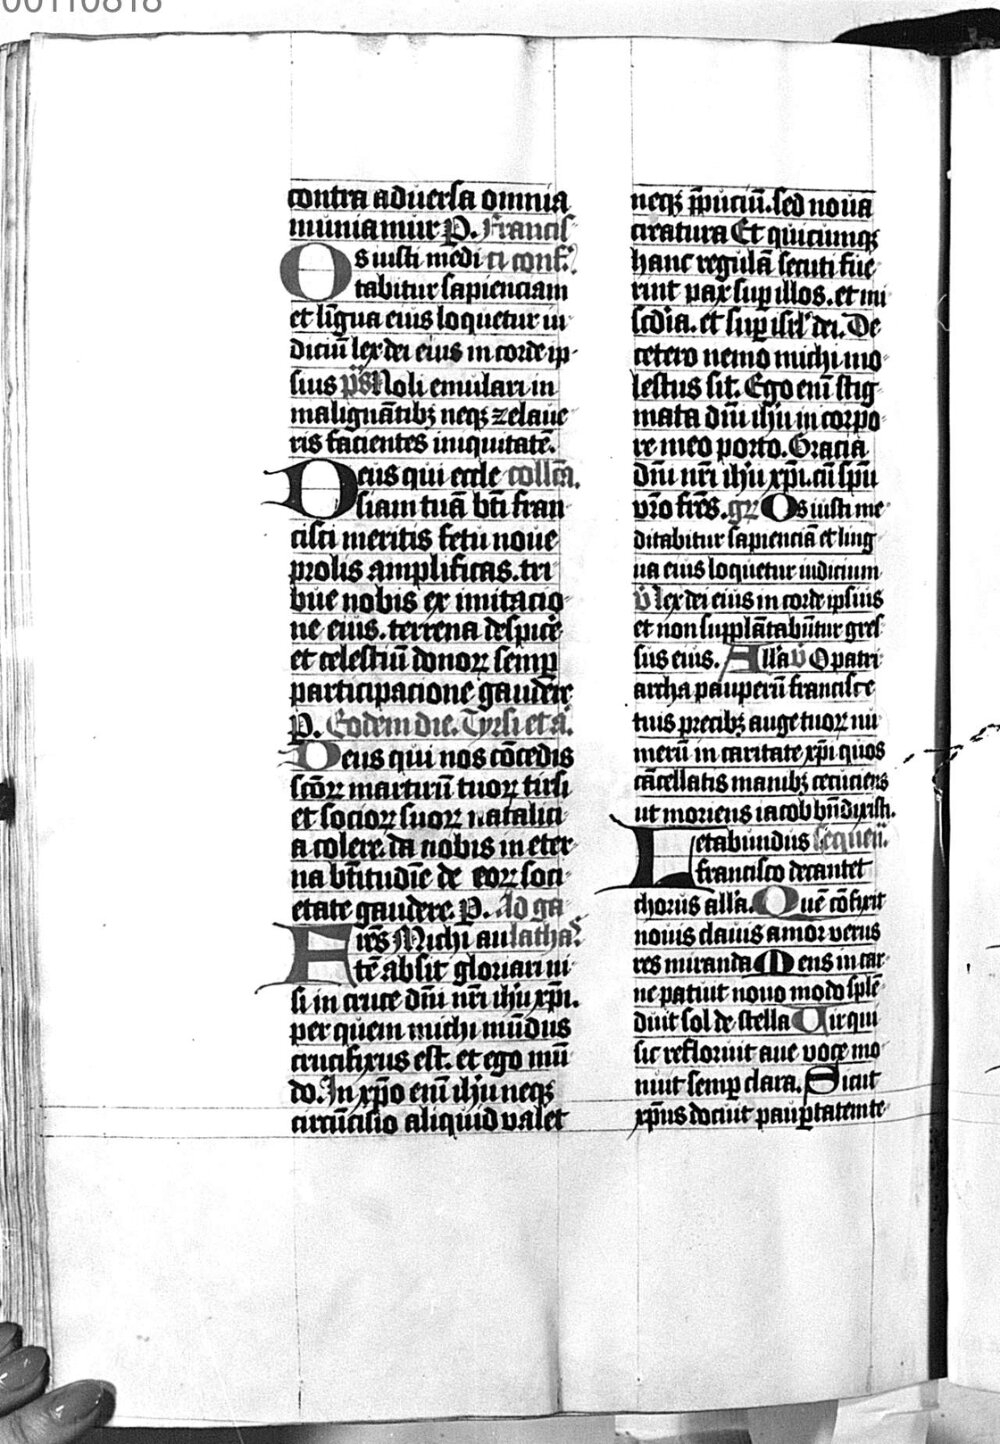 00110818
contra aduersa omnia
muniamur P. Francis
Os iusti medi ci conf.
tabitur sapienciam
et līgua eius loquetur iu
diciū lex dei eius in corde ip
sius ps Noli emulari in
malignātibꝫ neqꝫ zelaue
ris facientes iniquitatē.
Deus qui eccle collcā.
siam tuā bti fran
cisci meritis fetu noue
prolis amplificas. tri
bue nobis ex imitacio
ne eius. terrena despice
et celestiū donoꝝ semp
participacione gaudere
P. Eodem die. Tyrsi et a.
Deus qui nos cōcedis
scōꝝ martirū tuoꝝ tirsi
et socioꝝ suoꝝ natalici
a colere. da nobis in eter
na btitudīe de eoꝝ soci
etate gaudere. P. Ad ga
Frēs Michi au latha.
tē absit gloriari ni
si in cruce dn̄i nr̄i ihu xp̄i.
per quem michi mūdus
crucifixus est. et ego mū
do. In xp̄o enī ihu neqꝫ
circūcisio aliquid valet
neqꝫ p̄puciū. sed noua
creatura Et quicumqꝫ
hanc regulā secuti fue
rint pax sup illos. et mi
scdia. et sup isrl dei. De
cetero nemo michi mo
lestus sit. Ego enī stig
mata dn̄i ihu in corpo
re meo porto. Gracia
dn̄i nr̄i ihu xp̄i. cū spū
vr̄o frēs. gꝝ Os iusti me
ditabitur sapienciā et ling
ua eius loquetur iudicium
v̄ lex dei eius in corde ipsius
et non supplātabūtur gres
sus eius. Alla v̄ O patri
archa pauperū francisce
tuis precibꝫ auge tuoꝝ nu
merū in caritate xp̄i quos
cācellatis manibꝫ cecuciens
ut moriens iacob bn̄dixisti.
Letabundus sequen.
francisco decantet
chorus alla. Quē cōfixit
nouis clauis amor verus
res miranda Mens in car
ne patuit nouo modo splē
duit sol de stella Vir qui
sic refloruit aue voce mo
nuit semp clara. Sicut
xp̄us docuit pauptatem te